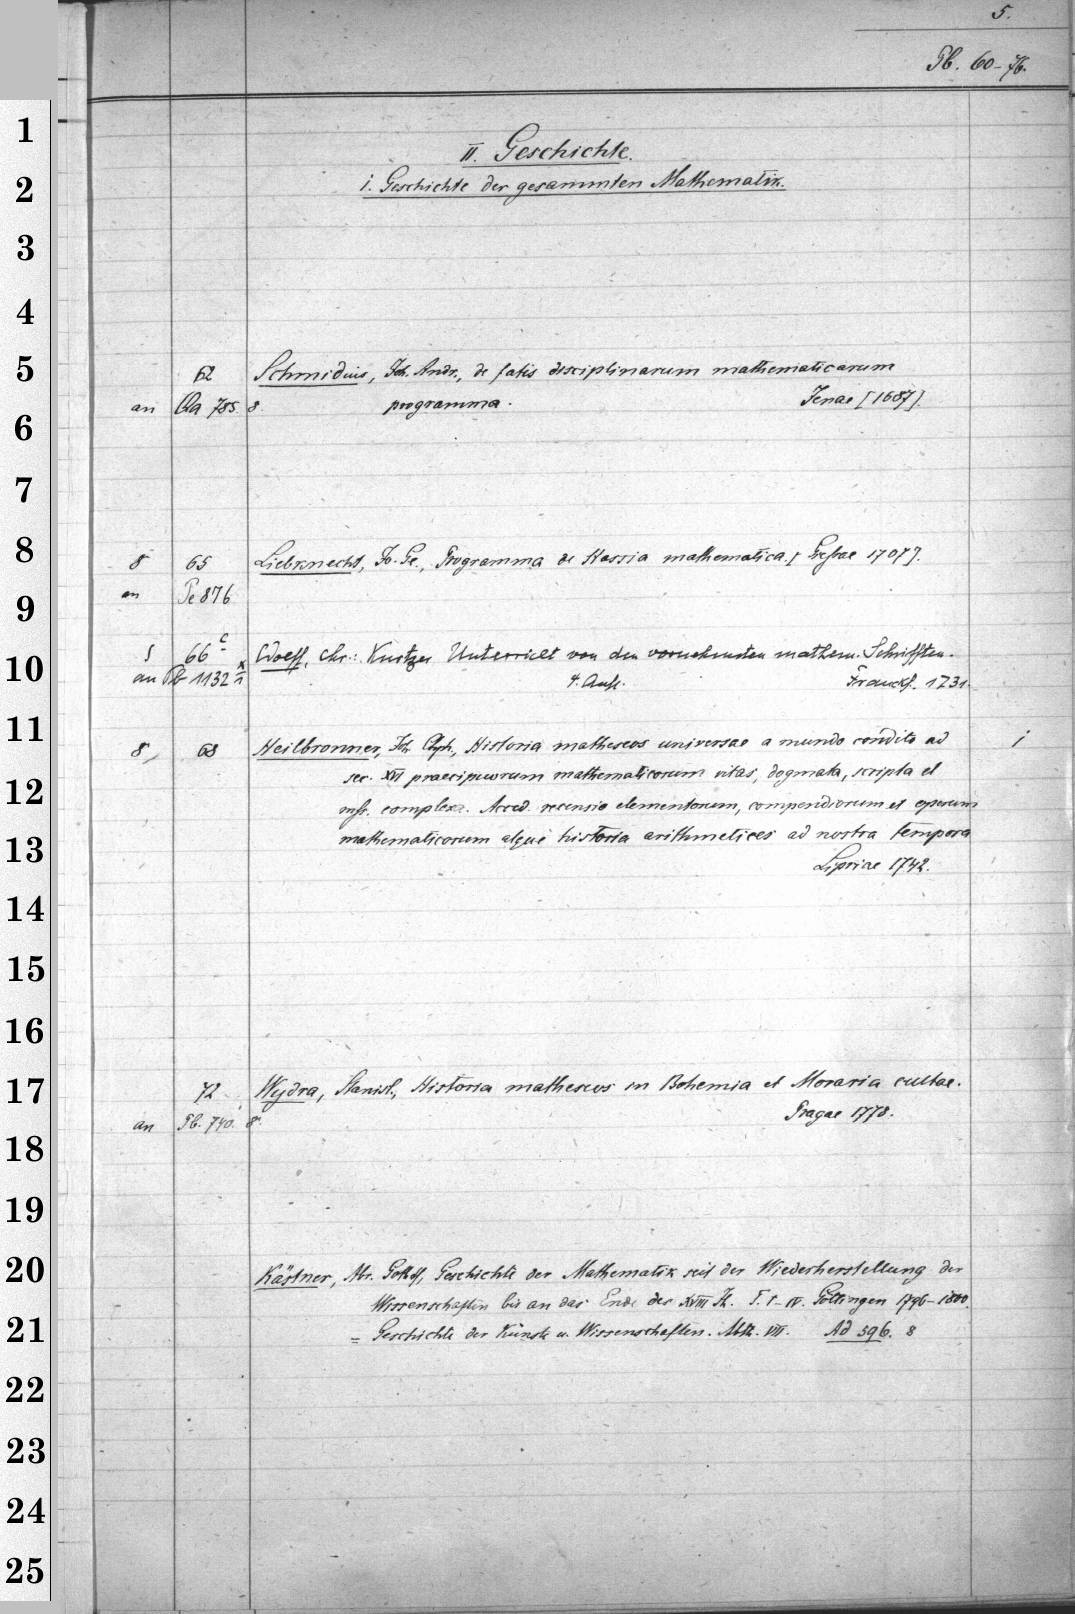 5.
Pb. 60-76.
1
II. Geschichte.
2
1. Geschichte der gesammten Mathematik.
3
4
5
62 Schmidius, Joh. Andr., de fatis disciplinarum mathematicarum
an Qa 785. 8. programma. Jenae [1687].
6
7
8
8 65 Liebknecht, Jo. Ge., Programma de Hassia mathematica. [Gissae 1707].
an Pe 876
9
66 c Wolff, Chr.: Kurtzer Unterricht von den vornehmsten mathem. Schrifften.
10
an Pb 1132 4. Aufl. Franckf. 1731.
11
8, 68 Heilbronner, Joh. Chph., Historia matheseos universae a mundo condito ad 1
sec. XVI praecipuorum mathematicorum vitas, dogmata, scripta et
12
mss. complexa. Acced. recensio elementorum, compendiorum et operum
13
mathematicorum atque historia arithmetices ad nostra tempora
Lipsiae 1742.
14
15
16
17
72 Wydra, Stanisl., Historia matheseos in Bohemia et Moravia cultae.
an Pb. 740. 8. Pragae 1778.
18
19
20
Kästner, Abr. Gotth., Geschichte der Mathematik seit der Wiederherstellung der
Wissenschaften bis an das Ende des XVIII Jh. T. I-IV. Göttingen 1796-1800.
21
= Geschichte der Künste u. Wissenschaften. Abth. VII. Ad 596. 8
22
23
24
25